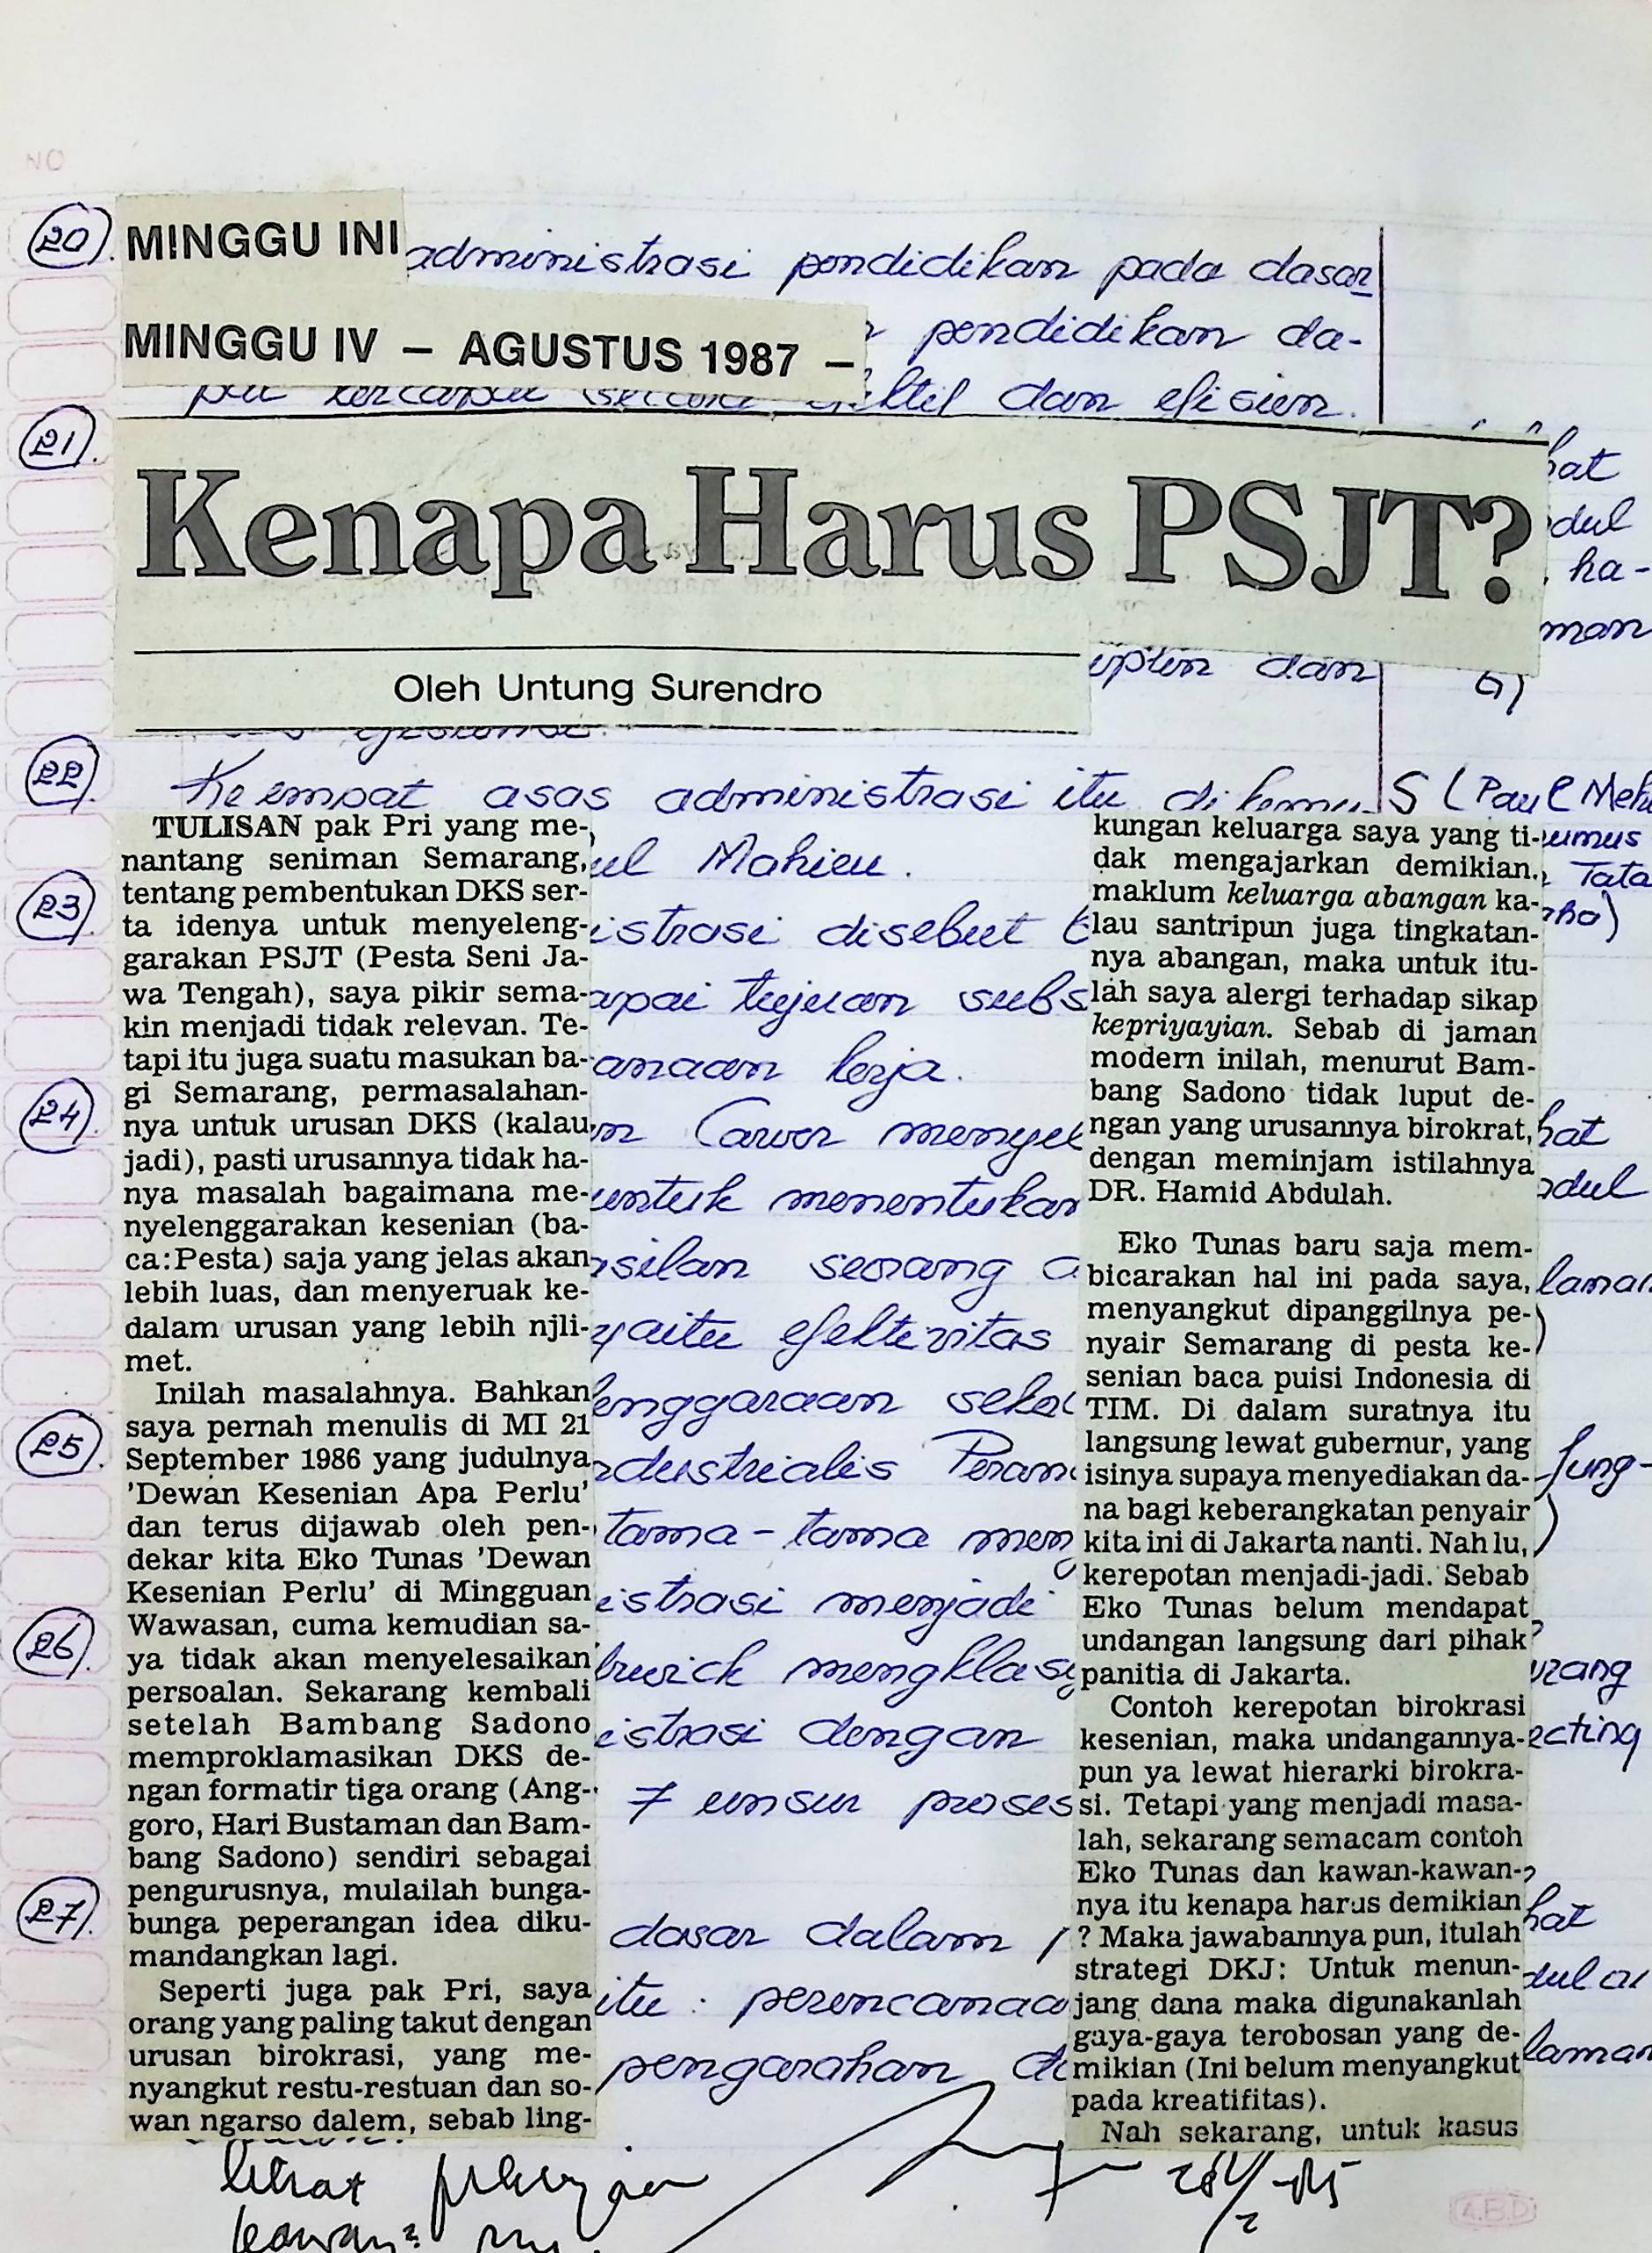 NO
20.
MINGGU INI
administrasi pendidikan pada dasar
MINGGU IV – AGUSTUS 1987 –
pendidikan da-
dan efisien.
21.
hat
Kenapa Harus PSJT?
dul
ha-
man
dan
6)
Oleh Untung Surendro
22.
Keempat asas administrasi itu
S (Paul
TULISAN pak Pri yang me-
nantang seniman Semarang,
tentang pembentukan DKS ser-
ta idenya untuk menyeleng-
garakan PSJT (Pesta Seni Ja-
wa Tengah), saya pikir sema-
kin menjadi tidak relevan. Te-
tapi itu juga suatu masukan ba-
gi Semarang, permasalahan-
nya untuk urusan DKS (kalau
jadi), pasti urusannya tidak ha-
nya masalah bagaimana me-
nyelenggarakan kesenian (ba-
ca:Pesta) saja yang jelas akan
lebih luas, dan menyeruak ke-
dalam urusan yang lebih njli-
met.
Inilah masalahnya. Bahkan
saya pernah menulis di MI 21
September 1986 yang judulnya
'Dewan Kesenian Apa Perlu'
dan terus dijawab oleh pen-
dekar kita Eko Tunas 'Dewan
Kesenian Perlu' di Mingguan
Wawasan, cuma kemudian sa-
ya tidak akan menyelesaikan
persoalan. Sekarang kembali
setelah Bambang Sadono
memproklamasikan DKS de-
ngan formatir tiga orang (Ang-
goro, Hari Bustaman dan Bam-
bang Sadono) sendiri sebagai
pengurusnya, mulailah bunga-
bunga peperangan idea diku-
mandangkan lagi.
Seperti juga pak Pri, saya
orang yang paling takut dengan
urusan birokrasi, yang me-
nyangkut restu-restuan dan so-
wan ngarso dalem, sebab ling-
kungan keluarga saya yang ti-
dak mengajarkan demikian,
maklum keluarga abangan ka-
lau santripun juga tingkatan-
nya abangan, maka untuk itu-
lah saya alergi terhadap sikap
kepriyayian. Sebab di jaman
modern inilah, menurut Bam-
bang Sadono tidak luput de-
ngan yang urusannya birokrat,
dengan meminjam istilahnya
DR. Hamid Abdulah.
Eko Tunas baru saja mem-
bicarakan hal ini pada saya,
menyangkut dipanggilnya pe-
nyair Semarang di pesta ke-
senian baca puisi Indonesia di
TIM. Di dalam suratnya itu
langsung lewat gubernur, yang
isinya supaya menyediakan da-
na bagi keberangkatan penyair
kita ini di Jakarta nanti. Nah lu,
kerepotan menjadi-jadi. Sebab
Eko Tunas belum mendapat
undangan langsung dari pihak
panitia di Jakarta.
Contoh kerepotan birokrasi
kesenian, maka undangannya-
pun ya lewat hierarki birokra-
si. Tetapi yang menjadi masa-
lah, sekarang semacam contoh
Eko Tunas dan kawan-kawan-
nya itu kenapa harus demikian
? Maka jawabannya pun, itulah
strategi DKJ: Untuk menun-
jang dana maka digunakanlah
gaya-gaya terobosan yang de-
mikian (Ini belum menyangkut
pada kreatifitas).
Nah sekarang, untuk kasus
Mahieu.
umus
Tata
23.
istrasi disebut
apai tujuan subs
anaan kerja.
24.
Carver menyel
hat
untuk menentukan
dul
silan seorang
laman
yaitu efektivitas
enggaraan sekol
25.
dustrialis Peran
fung-
tama-tama men
istrasi menjadi
26.
wick mengklasi
istrasi dengan
ecting
7 unsur proses
27.
dasar dalam
hat
itu : perencanaa
dul
pengarahan
laman
lihat
A.B.D